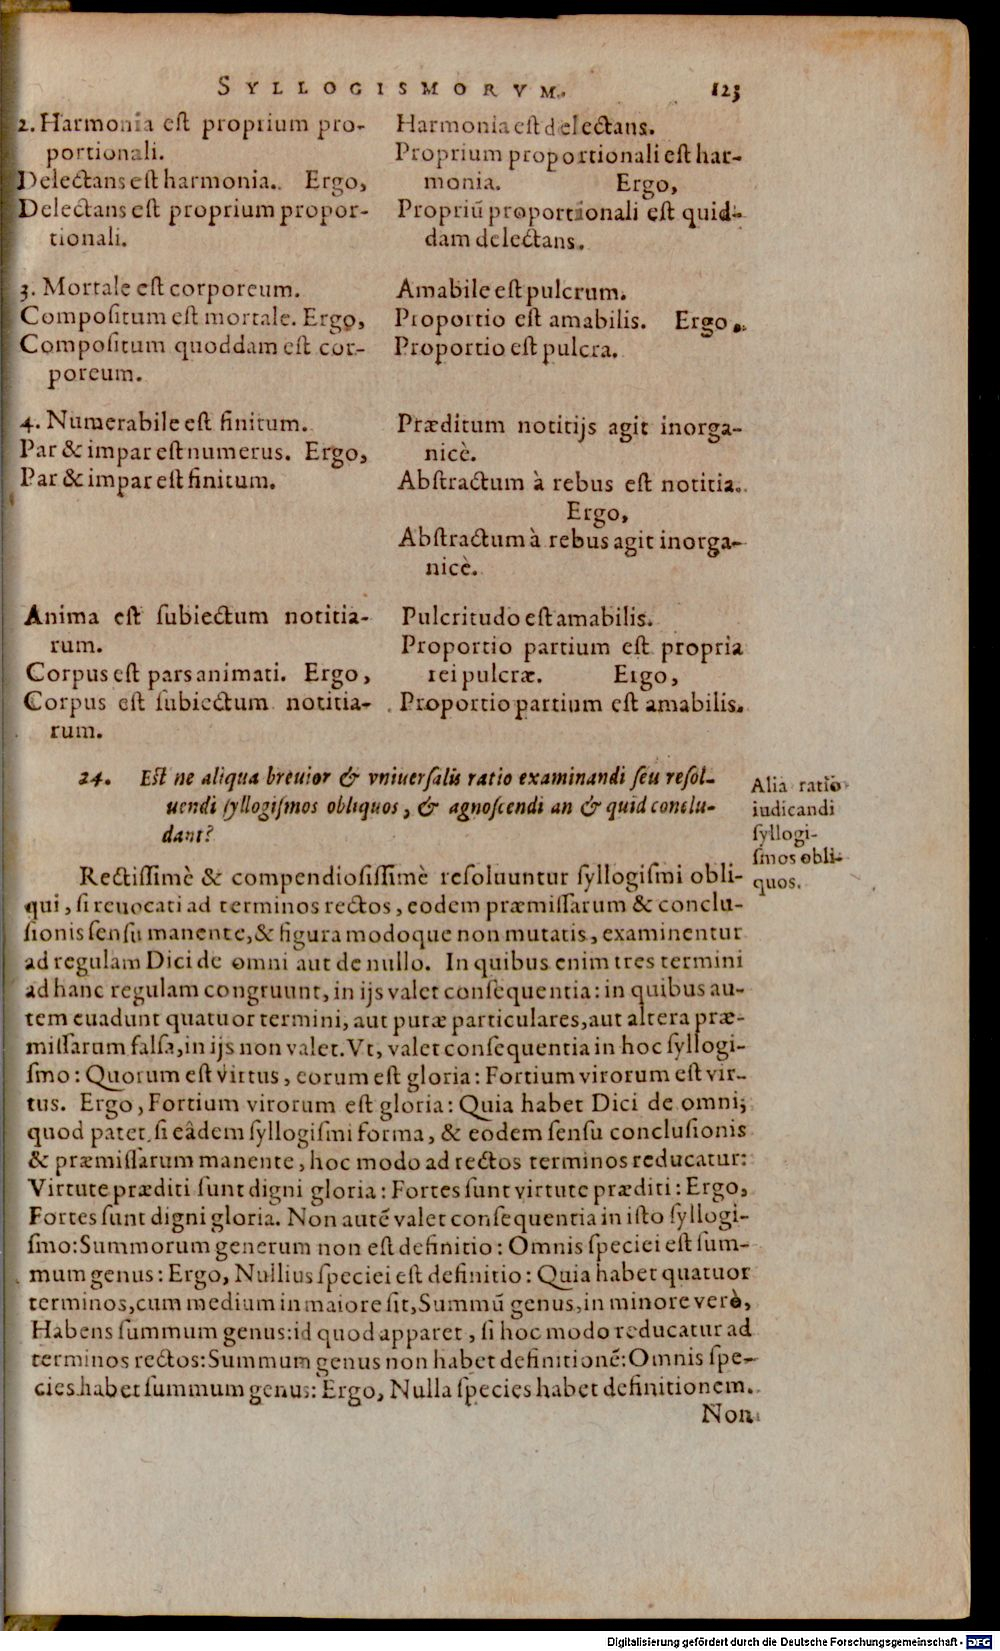 SYLLOGISMORVM. 123
2. Harmonia est proprium pro-
portionali.
Delectans est harmonia. Ergo,
Delectans est proprium propor-
tionali.
Harmonia est delectans.
Proprium proportionali est har-
monia. Ergo,
Propriū proportionali est quid-
dam delectans.
3. Mortale est corporeum.
Compositum est mortale. Ergo,
Compositum quoddam est cor-
poreum.
Amabile est pulcrum.
Proportio est amabilis. Ergo,
Proportio est pulcra.
4. Numerabile est finitum.
Par & impar est numerus. Ergo,
Par & impar est finitum.
Præditum notitijs agit inorga-
nicè.
Abstractum à rebus est notitia.
Ergo,
Abstractum à rebus agit inorga-
nicè.
Anima est subiectum notitia-
rum.
Corpus est pars animati. Ergo,
Corpus est subiectum notitia-
rum.
Pulcritudo est amabilis.
Proportio partium est propria
rei pulcræ. Ergo,
Proportio partium est amabilis.
24. Est ne aliqua breuior & vniuersalis ratio examinandi seu resol-
uendi syllogismos obliquos, & agnoscendi an & quid conclu-
dant?
Alia ratio
iudicandi
syllogi-
smos obli-
quos.
Rectissimè & compendiosissimè resoluuntur syllogismi obli-
qui, si reuocati ad terminos rectos, eodem præmissarum & conclu-
sionis sensu manente, & figura modoque non mutatis, examinentur
ad regulam Dici de omni aut de nullo. In quibus enim tres termini
ad hanc regulam congruunt, in ijs valet consequentia: in quibus au-
tem euadunt quatuor termini, aut puræ particulares, aut altera præ-
missarum falsa, in ijs non valet. Vt, valet consequentia in hoc syllogi-
smo: Quorum est virtus, eorum est gloria: Fortium virorum est vir-
tus. Ergo, Fortium virorum est gloria: Quia habet Dici de omni;
quod patet, si eâdem syllogismi forma, & eodem sensu conclusionis
& præmissarum manente, hoc modo ad rectos terminos reducatur:
Virtute præditi sunt digni gloria: Fortes sunt virtute præditi: Ergo,
Fortes sunt digni gloria. Non autē valet consequentia in isto syllogi-
smo: Summorum generum non est definitio: Omnis speciei est sum-
mum genus: Ergo, Nullius speciei est definitio: Quia habet quatuor
terminos, cum medium in maiore sit, Summū genus, in minore verò,
Habens summum genus: id quod apparet, si hoc modo reducatur ad
terminos rectos: Summum genus non habet definitionē: Omnis spe-
cies habet summum genus: Ergo, Nulla species habet definitionem.
Non
Digitalisierung gefördert durch die Deutsche Forschungsgemeinschaft - DFG